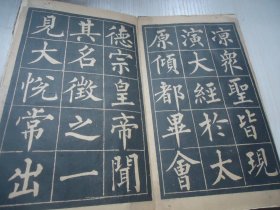 凉眾聖皆現
演大經於太
原傾都畢會
德宗皇帝聞
其名徵之一
見大悅常出